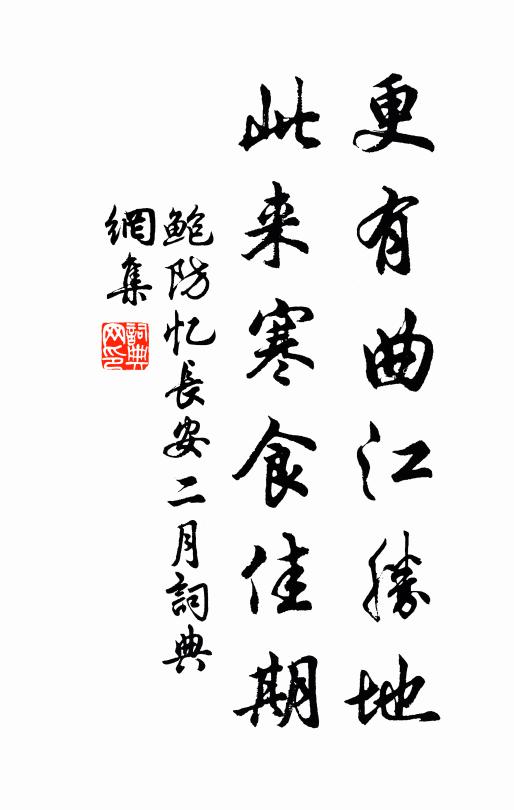 更有曲江勝地
此来寒食佳期
鲍防忆長安二月詞典
網集
詞典网印